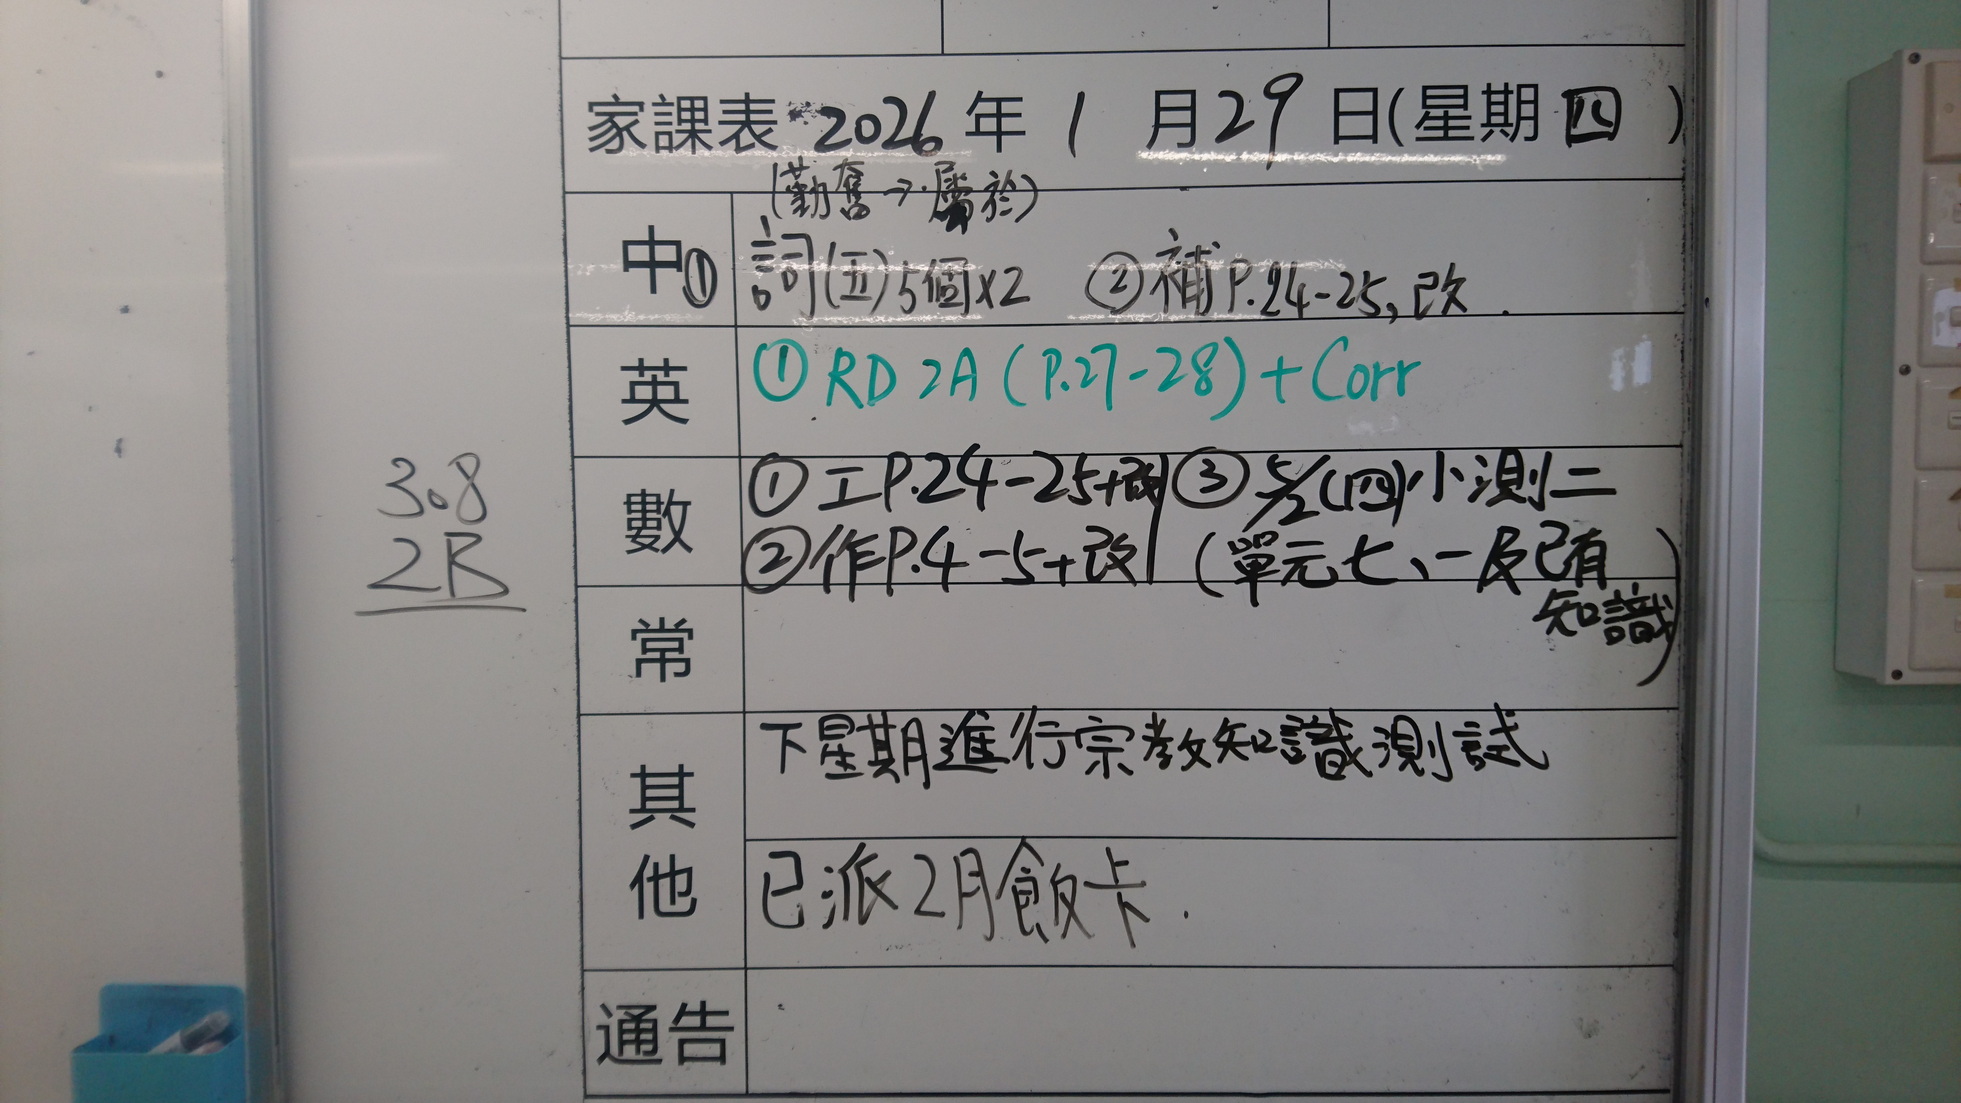 家課表 2026 年 1 月 29 日(星期 四 )
(勤奮→屬於)
中 ① 詞(五)5個x2 ②補P.24-25,改.
英 ① RD 2A (P.27-28) + Corr
數 ① 工P.24-25+改 ③ 5/2(四)小測二
② 作P.4-5+改 (單元七、一及已有
知識)
常
其他 下星期進行宗教知識測試
已派2月飯卡.
通告
3.8
2B